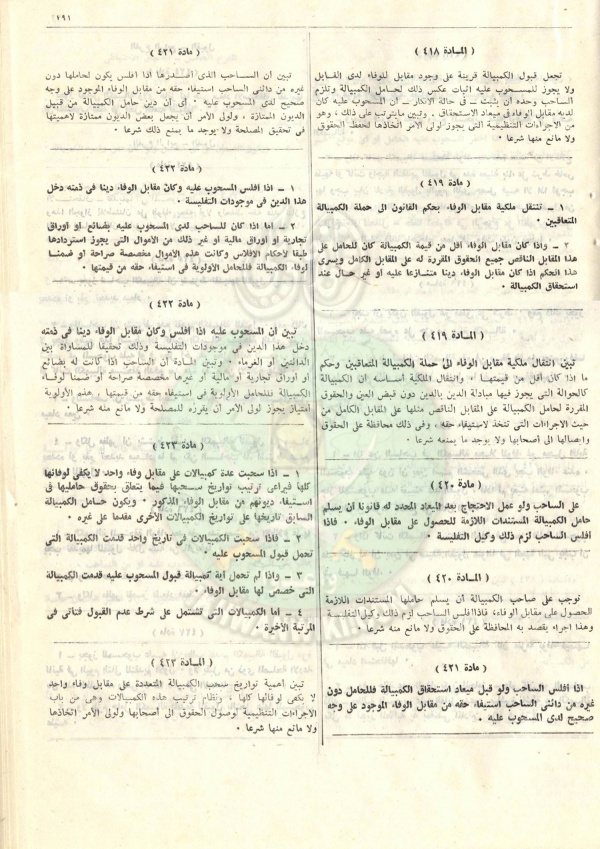 ٤٩١
( المادة ٤١٨ )
تجعل قبول الكمبيالة قرينة على وجود مقابل للوفاء لدى القابل
ولا يجوز للمسحوب عليه اثبات عكس ذلك لحامل الكمبيالة وتلزم
الساحب وحده ان يثبت – فى حالة الانكار – ان المسحوب عليه كان
لديه مقابل الوفاء فى ميعاد الاستحقاق . وتبين مايترتب على ذلك ، وهو
من الاجراءات التنظيمية التى يجوز لولى الامر اتخاذها لحفظ الحقوق
ولا مانع منها شرعا .
( مادة ٤١٩ )
١ – تنتقل ملكية مقابل الوفاء بحكم القانون الى حملة الكمبيالة
المتعاقبين .
٢ – واذا كان مقابل الوفاء أقل من قيمة الكمبيالة كان للحامل على
هذا المقابل الناقص جميع الحقوق المقررة له على المقابل الكامل ويسرى
هذا الحكم اذا كان مقابل الوفاء دينا متنازعا عليه او غير حال عند
استحقاق الكمبيالة .
( المادة ٤١٩ )
تبين انتقال ملكية مقابل الوفاء الى حملة الكمبيالة المتعاقبين وحكم
ما اذا كان أقل من قيمتها . وانتقال الملكية أساسه أن الكمبيالة
كالحوالة التى يجوز فيها مبادلة الدين بالدين دون قبض العين والحقوق
المقررة لحامل الكمبيالة على المقابل الناقص مثلها على المقابل الكامل من
حيث الاجراءات التى تتخذ لاستيفاء حقه ، وفى ذلك محافظة على الحقوق
وايصالها الى أصحابها ولا يوجد ما يمنعه شرعا .
( مادة ٤٢٠ )
على الساحب ولو عمل الاحتجاج بعد الميعاد المحدد له قانونا ان يسلم
حامل الكمبيالة المستندات اللازمة للحصول على مقابل الوفاء . فاذا
افلس الساحب لزم ذلك وكيل التفليسة .
( المادة ٤٢٠ )
توجب على صاحب الكمبيالة أن يسلم حاملها المستندات اللازمة
للحصول على مقابل الوفاء، فاذا افلس الساحب لزم ذلك وكيل التفليسة
وهذا اجراء يقصد به المحافظة على الحقوق ولا مانع منه شرعا .
( مادة ٤٢١ )
اذا أفلس الساحب ولو قبل ميعاد استحقاق الكمبيالة فللحامل دون
غيره من دائنى الساحب استيفاء حقه من مقابل الوفاء الموجود على وجه
صحيح لدى المسحوب عليه .
( مادة ٤٢١ )
تبين أن الساحب الذى أصدرها اذا افلس يكون لحاملها دون
غيره من دائنى الساحب استيفاء حقه من مقابل الوفاء الموجود على وجه
صحيح لدى المسحوب عليه . أى أن دين حامل الكمبيالة من قبيل
الديون الممتازة ، ولولى الأمر أن يجعل بعض الديون ممتازة لاهميتها
فى تحقيق المصلحة ولا يوجد ما يمنع ذلك شرعا .
( مادة ٤٢٢ )
١ – اذا أفلس المسحوب عليه وكان مقابل الوفاء دينا فى ذمته دخل
هذا الدين فى موجودات التفليسة .
٢ – أما اذا كان للساحب لدى المسحوب عليه بضائع او أوراق
تجارية او أوراق مالية او غير ذلك من الاموال التى يجوز استردادها
طبقا لأحكام الافلاس وكانت هذه الأموال مخصصة صراحة او ضمنا
لوفاء الكمبيالة فللحامل الأولوية فى استيفاء حقه من قيمتها .
( مادة ٤٢٢ )
تبين أن المسحوب عليه اذا أفلس وكان مقابل الوفاء دينا فى ذمته
دخل هذا الدين فى موجودات التفليسة وذلك تحقيقا للمساواة بين
الدائنين أو الغرماء . وتبين المادة أن الساحب اذا كانت له بضائع
أو أوراق تجارية أو مالية أو غيرها مخصصة صراحة أو ضمنا لوفاء
الكمبيالة فللحامل الأولوية فى استيفاء حقه من قيمتها ، هذه الأولوية
امتياز يجوز لولى الأمر أن يقرره للمصلحة ولا مانع منه شرعا .
( مادة ٤٢٣ )
١ – اذا سحبت عدة كمبيالات على مقابل وفاء واحد لا يكفى لوفائها
كلها فيراعى ترتيب تواريخ سحبها فيما يتعلق بحقوق حامليها فى
استيفاء ديونهم من مقابل الوفاء المذكور . ويكون حامل الكمبيالة
السابق تاريخها على تواريخ الكمبيالات الأخرى مقدما على غيره .
٢ – فاذا سحبت الكمبيالات فى تاريخ واحد قدمت الكمبيالة التى
تحمل قبول المسحوب عليه .
٣ – واذا لم تحمل أية كمبيالة قبول المسحوب عليه قدمت الكمبيالة
التى خصص لها مقابل الوفاء .
٤ – أما الكمبيالات التى تشتمل على شرط عدم القبول فتأتى فى
المرتبة الأخيرة .
( المادة ٤٢٣ )
تبين أهمية تواريخ سحب الكمبيالة المتعددة على مقابل وفاء واحد
لا يكفى لوفائها كلها . ونظام ترتيب هذه الكمبيالات وهى من باب
الاجراءات التنظيمية لوصول الحقوق الى أصحابها ولولى الأمر اتخاذها
ولا مانع منها شرعا .